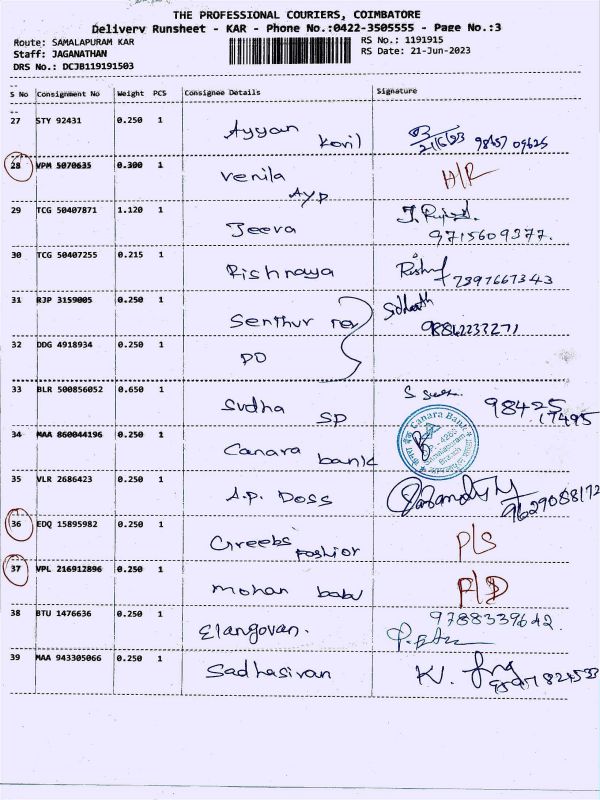 THE PROFESSIONAL COURIERS, COIMBATORE
Delivery Runsheet - KAR - Phone No.:0422-3505555 - Page No.:3
Route: SAMALAPURAM KAR
RS No.: 1191915
Staff: JAGANATHAN
RS Date: 21-Jun-2023
DRS No.: DCJB119191503
S No Consignment No Weight PCS Consignee Details Signature
27 STY 92431 0.250 1 Ayyan Kovil 21/6/23
28 VPM 5070635 0.300 1 Venila Ayp H/R
29 TCG 50407871 1.120 1 Jeeva
9715609377.
30 TCG 50407255 0.215 1 Rishnaya 7397667343
31 RJP 3159005 0.250 1 Senthur
32 DDG 4918934 0.250 1 DO
33 BLR 500856052 0.650 1 Sudha SP 98425
17495
34 MAA 860044196 0.250 1 Canara bank Canara Bank
Samalapuram
Branch
35 VLR 2686423 0.250 1 A.P. Doss 9629088172
36 EDQ 15895982 0.250 1 Greebs P/S
37 VPL 216912896 0.250 1 Mohan babu
38 BTU 1476636 0.250 1 Elangovan. 9788339642.
39 MAA 943305066 0.250 1 Sadhasivan